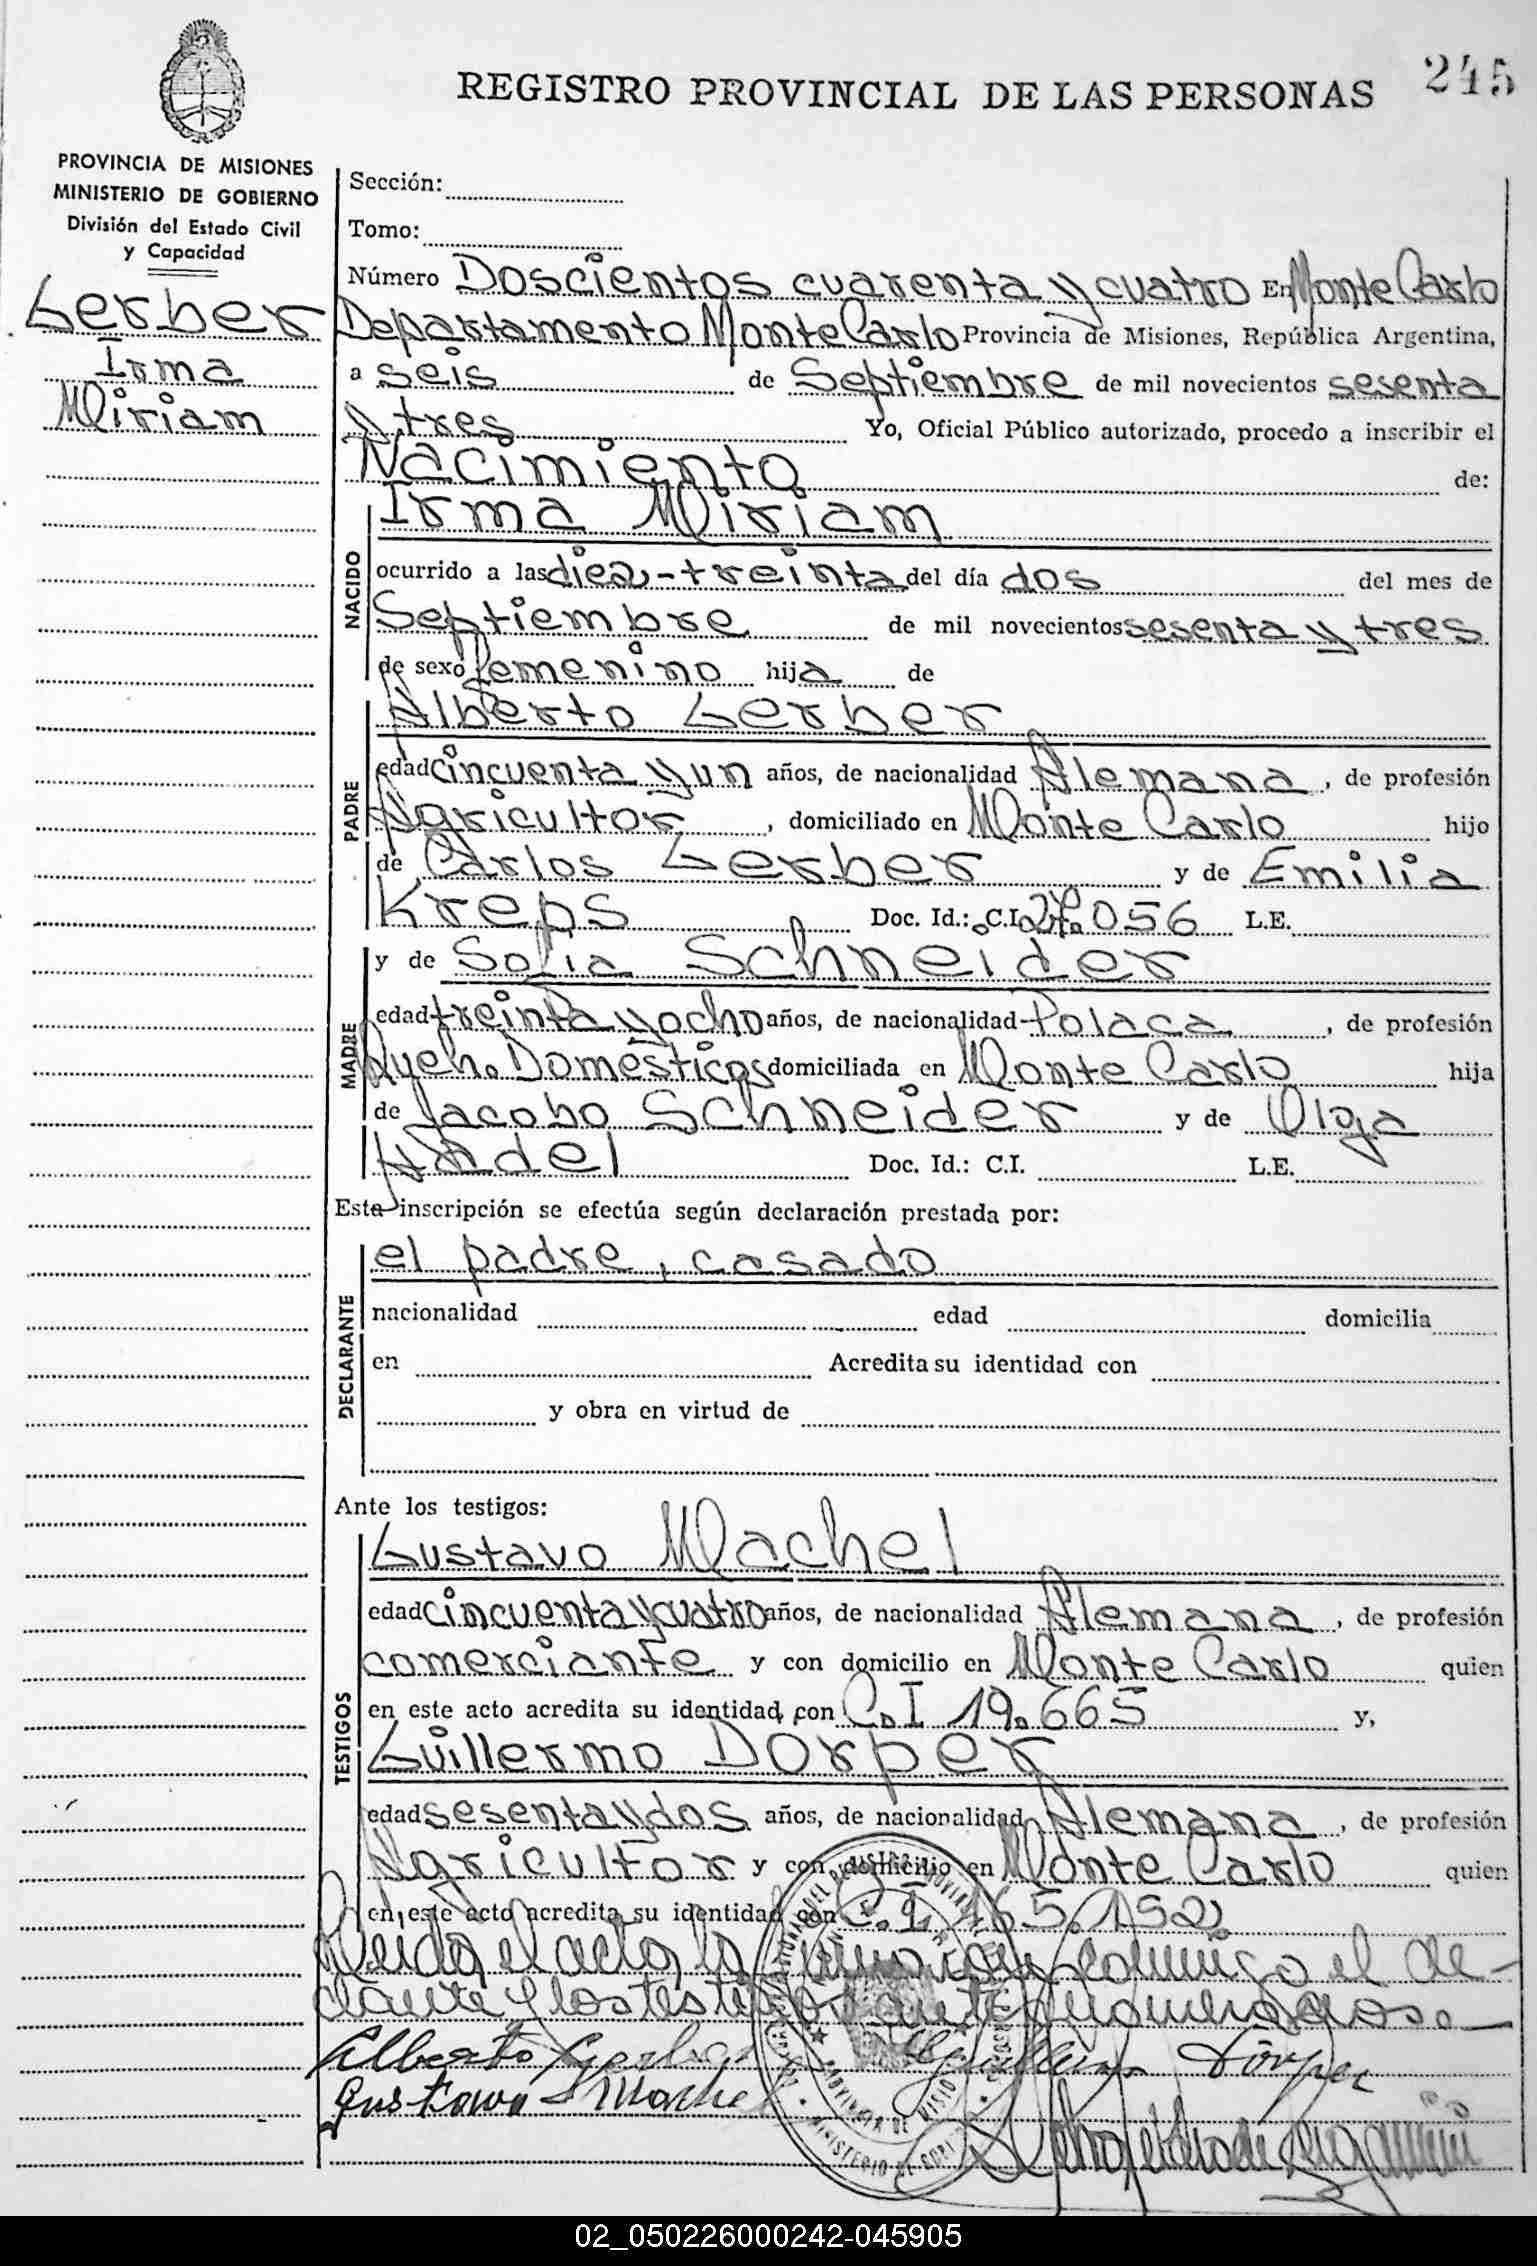 245
REGISTRO PROVINCIAL DE LAS PERSONAS
PROVINCIA DE MISIONES
MINISTERIO DE GOBIERNO
División del Estado Civil
y Capacidad
Gerber
Irma
Miriam
Sección:
Tomo:
Número Doscientos cuarenta y cuatro En Monte Carlo
Departamento Monte Carlo Provincia de Misiones, República Argentina,
a seis de Septiembre de mil novecientos sesenta
y tres Yo, Oficial Público autorizado, procedo a inscribir el
Nacimiento de:
NACIDO
Irma Miriam
ocurrido a las diez-treinta del día dos del mes de
Septiembre de mil novecientos sesenta y tres
de sexo femenino hija de
PADRE
Alberto Gerber
edad cincuenta y un años, de nacionalidad Alemana, de profesión
Agricultor, domiciliado en Monte Carlo hijo
de Carlos Gerber y de Emilia
Kreps Doc. Id.: C.I. 27.056 L.E.
MADRE
y de Sofia Schneider
edad treinta y ocho años, de nacionalidad Polaca, de profesión
Queh. Domésticos domiciliada en Monte Carlo hija
de Jacobo Schneider y de Olga
Hadel Doc. Id.: C.I. L.E.
Esta inscripción se efectúa según declaración prestada por:
DECLARANTE
el padre, casado
nacionalidad edad domicilia
en Acredita su identidad con
y obra en virtud de
Ante los testigos:
TESTIGOS
Gustavo Machel
edad cincuenta y cuatro años, de nacionalidad Alemana, de profesión
comerciante y con domicilio en Monte Carlo quien
en este acto acredita su identidad con C.I 19.665 y,
Guillermo Dorper
edad sesenta y dos años, de nacionalidad Alemana, de profesión
Agricultor y con domicilio en Monte Carlo quien
en este acto acredita su identidad con C.I 165.152
Leida el acta, la conmigo el de-
clarante y los testigos ante nombrados.
Alberto Gerber Guillermo Dörper
Gustavo Machel
PROVINCIA DE MISIONES
MINISTERIO DE GOBIERNO
02_050226000242-045905